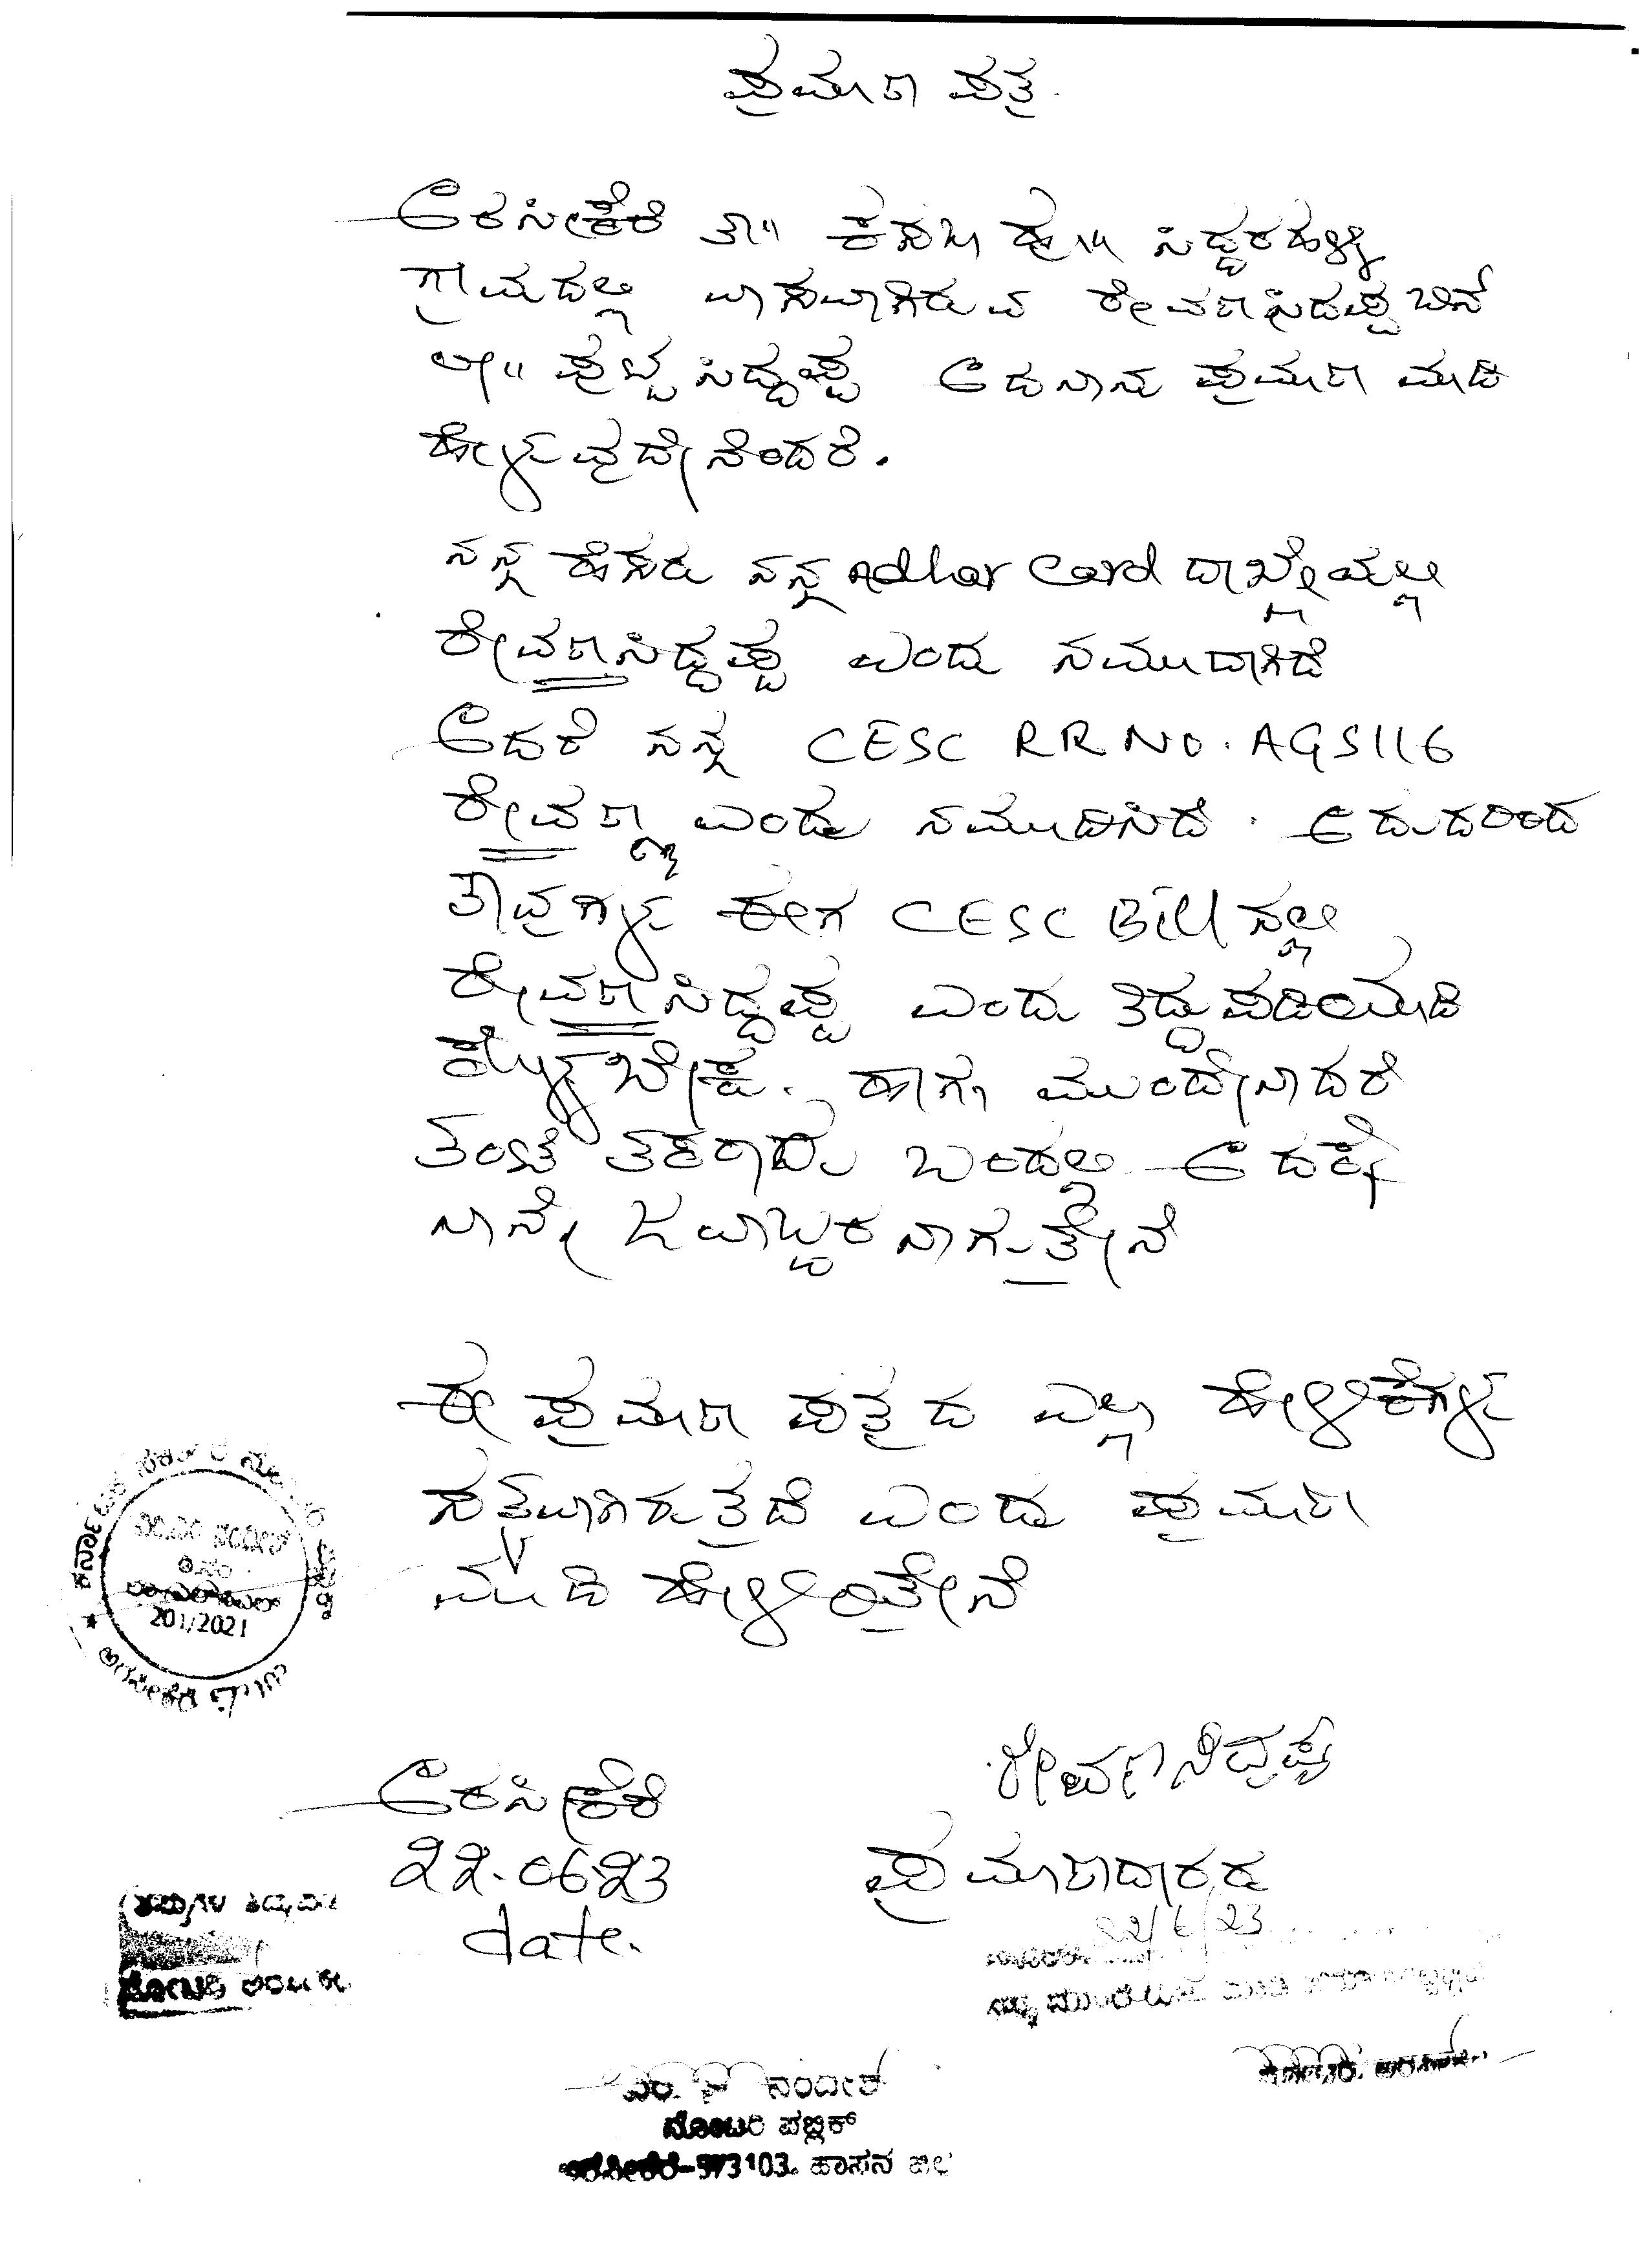 ಪ್ರಮಾಣ ಪತ್ರ.
ಅರಸೀಕೆರೆ ತಾ॥ ಕಸಬಾ ಹೋ॥ ಸಿದ್ದರಹಳ್ಳಿ
ಗ್ರಾಮದಲ್ಲಿ ವಾಸವಾಗಿರುವ ರೇವಣಸಿದಪ್ಪ ಬಿನ್
ಲೇ॥ ಪುಟ್ಟಸಿದ್ದಪ್ಪ ಆದ ನಾನು ಪ್ರಮಾಣ ಮಾಡಿ
ಹೇಳ್ಳುವುದೇನೆಂದರೆ.
ನನ್ನ ಹೆಸರು ನನ್ನ Adhar Card ದಾಖ್ಲೇಯಲ್ಲಿ
ರೇವಣಸಿದ್ದಪ್ಪ ಎಂದು ನಮುದಾಗಿದೆ
ಆದರೆ ನನ್ನ CESC RR NO. AGS116
ರೇವಣ್ಣ ಎಂದು ನಮುದಿಸಿದೆ. ಆದುದರಿಂದ
ತಾವುಗಳ್ಳು ಈಗ CESC Bill ನಲ್ಲಿ
ರೇವಣಸಿದ್ದಪ್ಪ ಎಂದು ತಿದ್ದುಪಡಿಯಮಾಡಿ
ಕೊಳ್ಳಬೇಕು. ಹಾಗೆ ಮುಂದೇನಾದರೆ
ತಂಟೆ ತಕರಾರು ಬಂದಲ್ಲಿ ಅದಕ್ಕೆ
ನಾನೇ ಜವಾಬ್ದಾರನಾಗುತ್ತೇನೆ
ಈ ಪ್ರಮಾಣ ಪತ್ರದ ಎಲ್ಲಾ ಹೇಳಿಕೆಗಳ್ಳು
ಸತ್ಯವಾಗಿರುತ್ತದೆ ಎಂದು ಪ್ರಮಾಣ
ಮಾಡಿ ಹೇಳಿರಿತ್ತೇನೆ
ಕರ್ನಾಟಕ ಸರ್ಕಾರ
201/2021
ಅರಸೀಕೆರೆ
ರೇವಣಸಿದ್ದಪ್ಪ
ಅರಸೀಕೆರೆ
22-06-23
ಪ್ರಮಾಣದಾರರು
date.
22/6/23
ಎಂ. ನಂದೀಶ
ನೋಟರಿ ಪಬ್ಲಿಕ್
ಅರಸೀಕೆರೆ-573103. ಹಾಸನ ಜಿಲ್ಲೆ